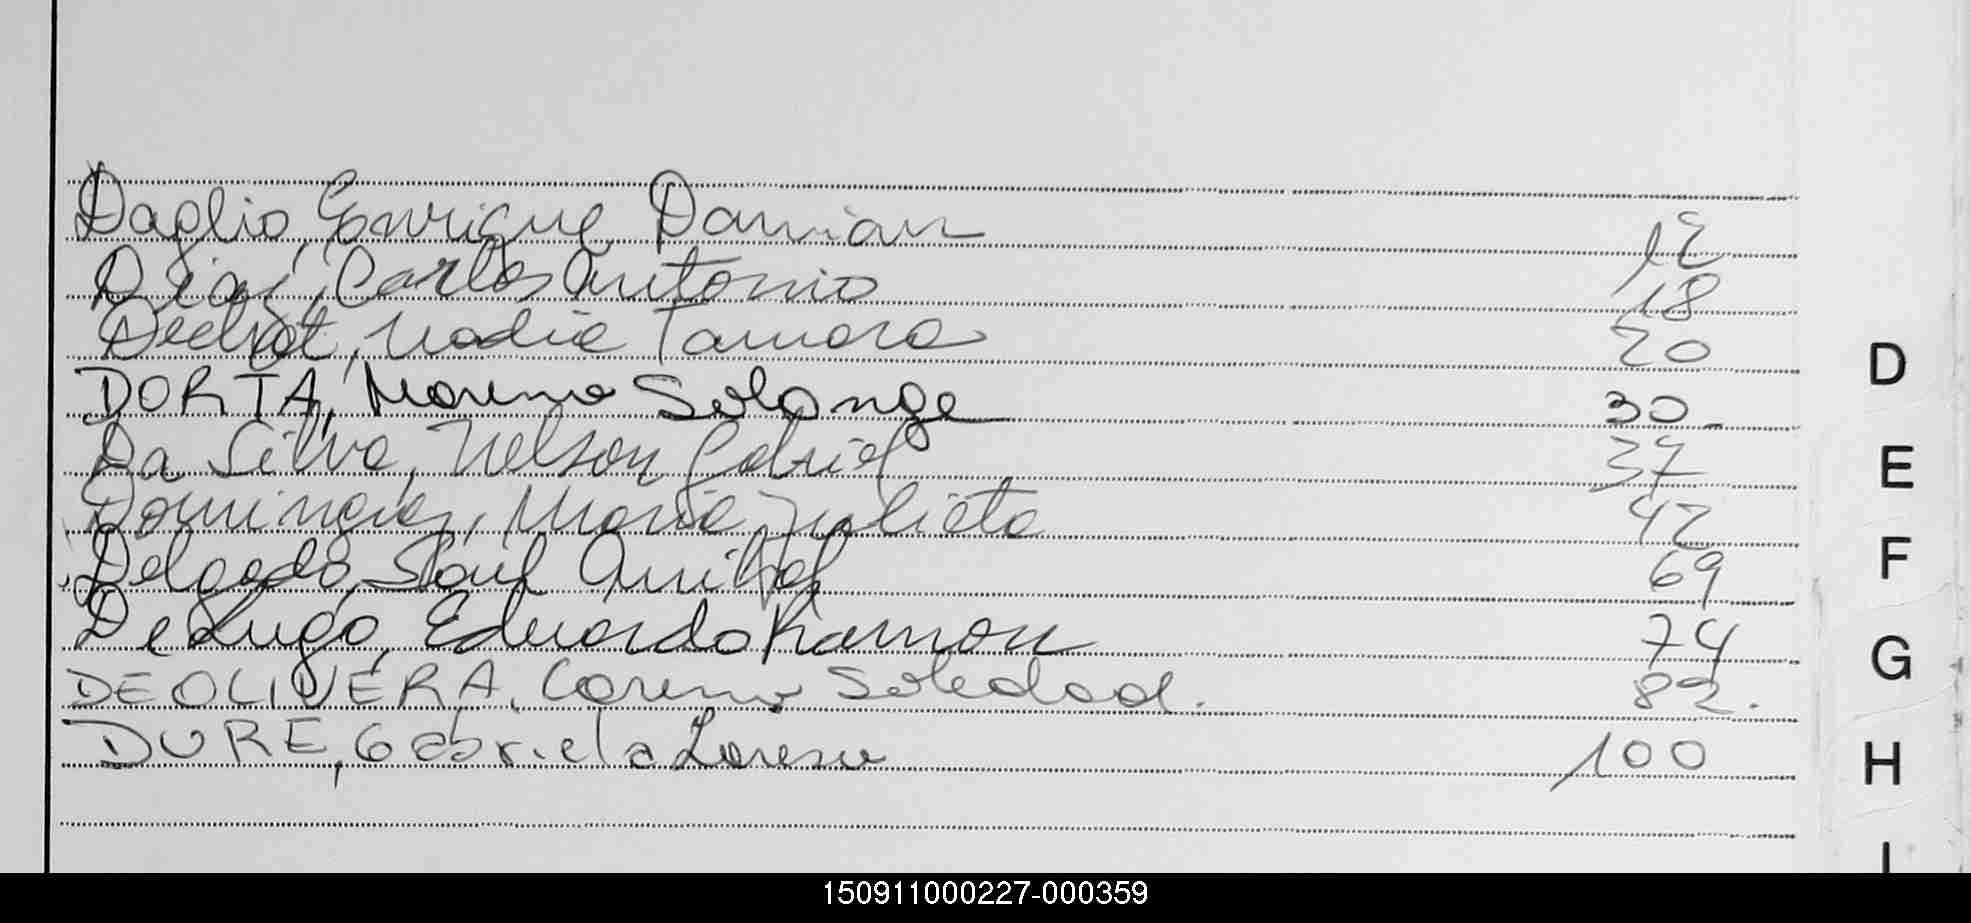 Daglio, Enrique Damian 12
Diaz, Carlos Antonio 18
Nadia Tamara 20
DORTA, Morena Solange 30
Da Silva, Nelson Gabriel 37
Dominguez, Maria Julieta 42
Delgado, Saul Anibal 69
De Lugo, Eduardo Ramon 74
DEOLIVERA, Corena Soledad. 82.
DURE, Gabriela Lorena 100
D
E
F
G
H
I
150911000227-000359